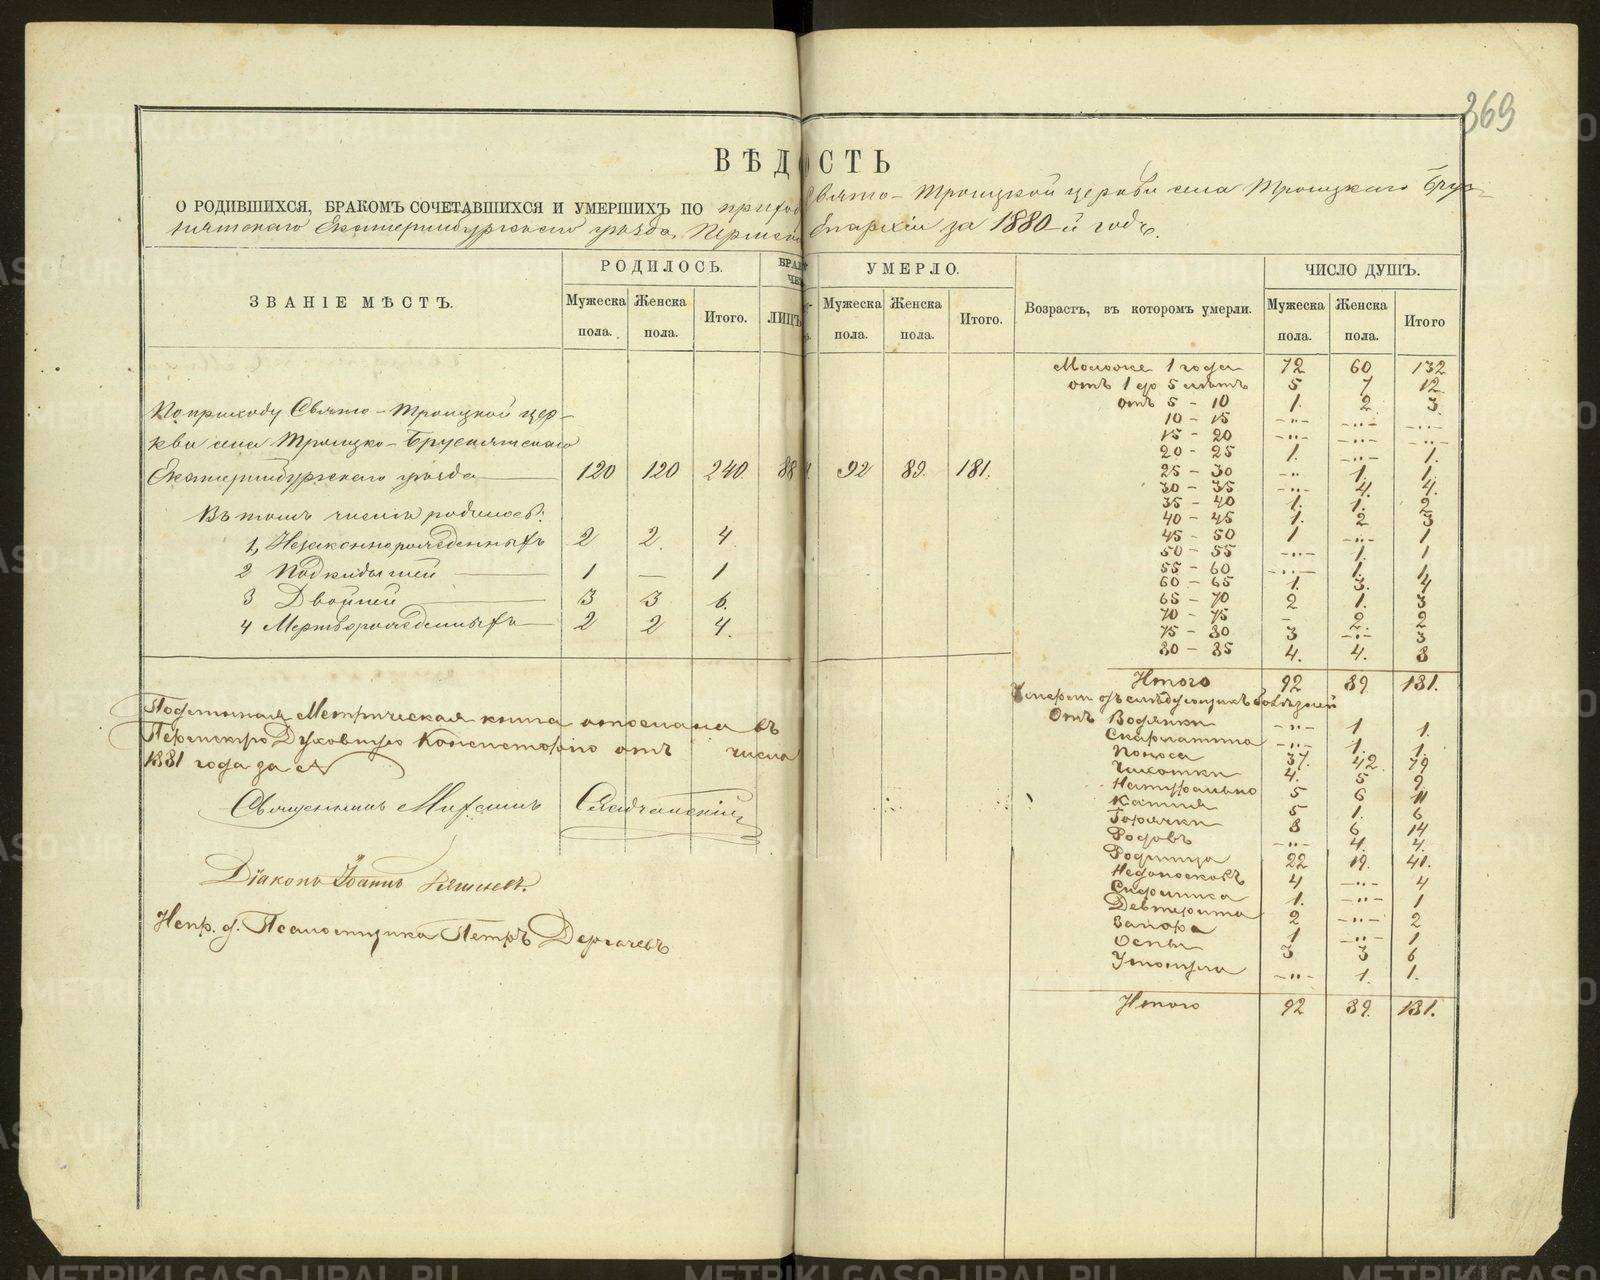 369
ВѢДОСТЬ
О РОДИВШИХСЯ, БРАКОМЪ СОЧЕТАВШИХСЯ И УМЕРШИХЪ ПО приход Свято-Троицкой церкви села Троицкаго Брус-
нятскаго Екатеринбургскаго уѣзда, Пермской Епархіи за 1880-й годъ.
ЗВАНІЕ МѢСТЪ.
РОДИЛОСЬ.
Мужеска пола.
Женска пола.
Итого.
ЛИЦЪ
УМЕРЛО.
Мужеска пола.
Женска пола.
Итого.
Возрастъ, въ которомъ умерли.
ЧИСЛО ДУШЪ.
Мужеска пола.
Женска пола.
Итого
По приходу Свято-Троицкой цер-
кви села Троицко-Бруснятскаго
Екатеринбургскаго уѣзда 120 120 240. 88 92 89. 181.
Въ томъ числѣ родилось:
1, Незаконнорожденныхъ 2 2. 4.
2 Подкидышей 1 — 1
3 Двойней 3 3 6.
4 Мертворожденныхъ 2 2 4.
Подлинная Метрическая книга отослана въ
Пермскую Духовную Консисторію отъ числа
1881 года за №
Священникъ Михаилъ
Діаконъ Іоаннъ
Испр. д. Псаломщика Петръ Дергачевъ
Моложе 1 года 72 60 132
отъ 1 до 5 лѣтъ 5 7 12.
отъ 5 - 10 1. 2. 3.
10 - 15 -..- -..- -..-
15 - 20 -..- -..- -..-
20 - 25 1. -..- 1.
25 - 30 -..- 1. 1.
30 - 35 -..- 4. 4.
35 - 40 1. 1. 2
40 - 45 1. 2 3
45 - 50 1 -..- 1
50 - 55 -..- 1. 1
55 - 60 -..- 1. 1.
60 - 65 1. 3. 4
65 - 70 2 1. 3
70 - 75 - 2. 2
75 - 80 3 -..- 3
80 - 85 4. 4. 8
Итого 92 89. 181.
Умерли отъ слѣдующихъ болѣзней
Отъ Водянки -..- 1 1.
Скарлатина -..- 1. 1.
Поноса 37. 42. 79
Чахотки 4. 5 9.
Натурально 5 6 11
Кашля 5 1. 6
Горячки 8 6 14
Родовъ -..- 4. 4.
Родимца 22 19. 41.
Недоносковъ 4 -..- 4
1. -..- 1
Девтерита 2 -..- 2
Запора 1 -..- 1
Оспы 3 3 6
Утонула -..- 1. 1.
Итого 92 89. 181.
METRIKI.GASO-URAL.RU